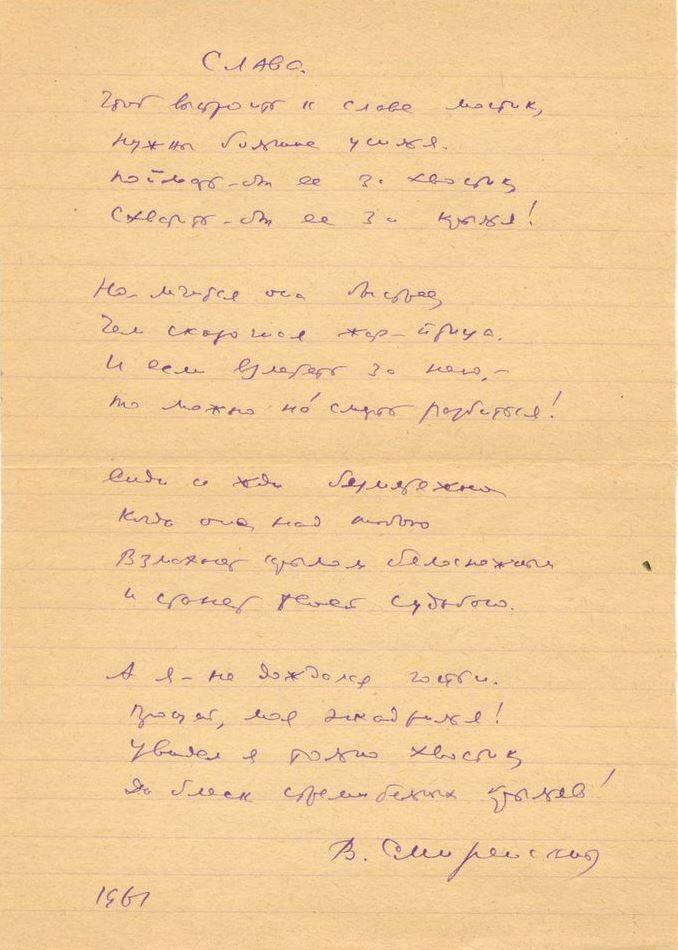 СЛАВА.
Чтоб выстроить к славе мостик,
Нужны большие усилья.
Поймать-бы ее за хвостик,
Схватить-бы ее за крылья!
Но мчится она быстрее,
Чем сказочная жар-птица.
И если взлететь за нею,-
То можно на́ смерть разбиться!
Сиди и жди безмятежно
Когда она над тобою
Взмахнет крылом белоснежным
И станет твоей судьбою.
А я - не дождался гостьи.
Прощай, моя эскадрилья!
Увидел я только хвостик,
Да блеск стремительных крыльев!
В. Смиренский
1961